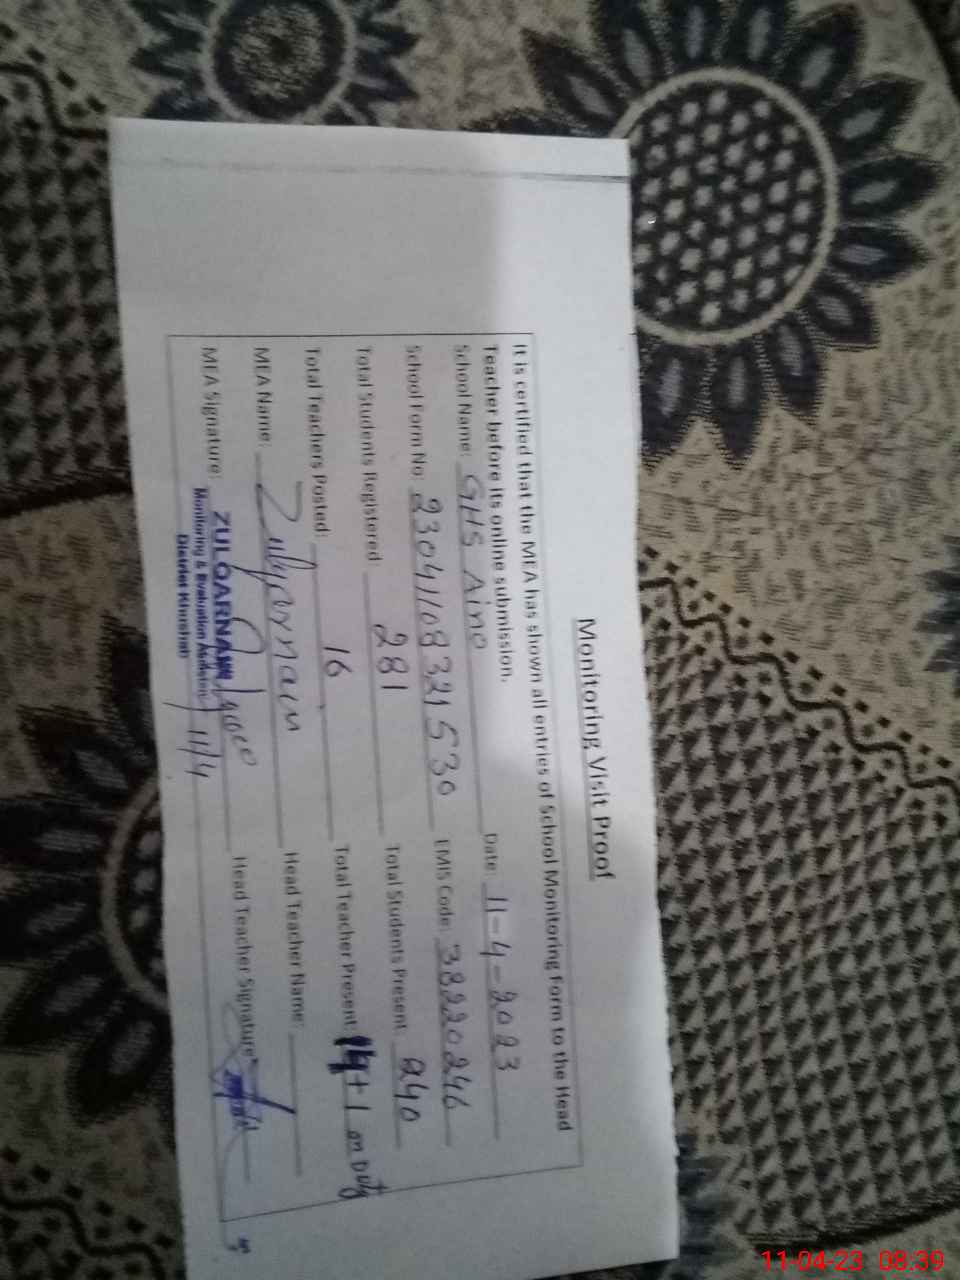 Monitoring Visit Proof
It is certified that the MEA has shown all entries of School Monitoring Form to the Head
Teacher before its online submission.
School Name: GHS Aino Date: 11-4-2023
School Form No: 23041108321530 EMIS Code: 38220246
Total Students Registered: 281 Total Students Present 240
Total Teachers Posted: 16 Total Teacher Present + 1 on Duty
MEA Name: Zulqarnain Head Teacher Name:
MEA Signature: Head Teacher Signature
ZULQARNAIN
Monitoring & Evaluation Assistant 11/4
District Khushab
11-04-23 08:39